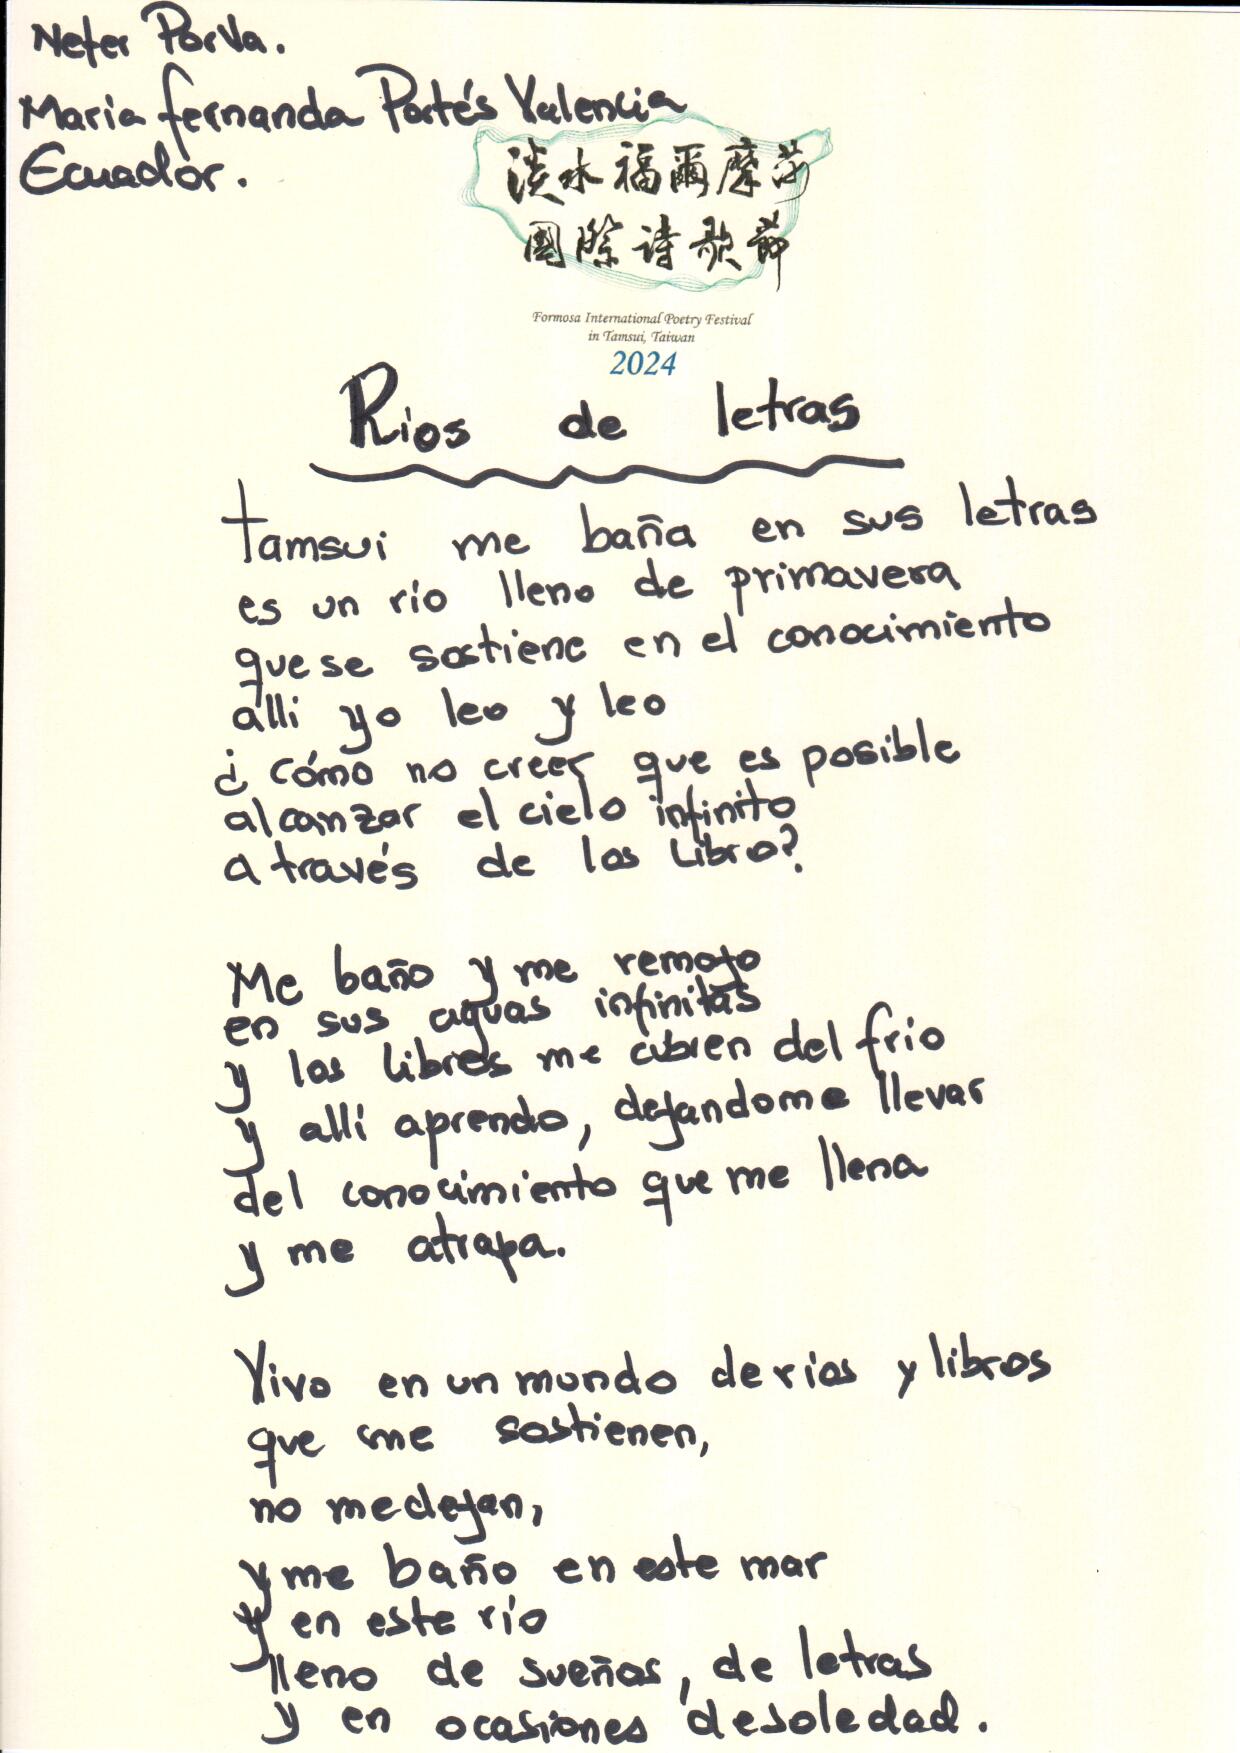 Neter Porva.
Maria fernanda Portés Valencia
Ecuador.
淡水福爾摩莎
國際詩歌節
Formosa International Poetry Festival
in Tamsui, Taiwan
2024
Rios de letras
Tamsui me baña en sus letras
es un río lleno de primavera
que se sostiene en el conocimiento
alli yo leo y leo
¿cómo no creer que es posible
alcanzar el cielo infinito
a través de los Libro?
Me baño y me remojo
en sus aguas infinitas
y los libros me cubren del frío
y allí aprendo, dejandome llevar
del conocimiento que me llena
y me atrapa.
Vivo en un mundo de rios y libros
que me sostienen,
no me dejan,
y me baño en este mar
y en este río
lleno de sueños, de letras
y en ocasiones de soledad.